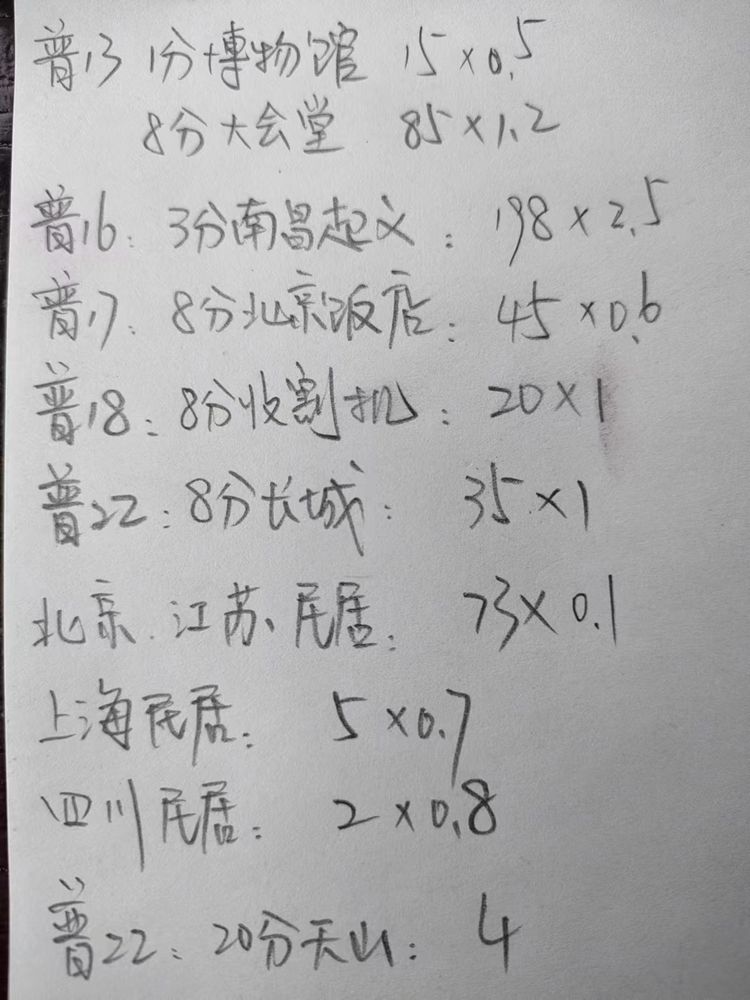 普13 1分博物馆 15×0.5
8分大会堂 85×1.2
普16: 3分南昌起义: 198×2.5
普17: 8分北京饭店: 45×0.6
普18: 8分收割机: 20×1
普22: 8分长城: 35×1
北京.江苏、民居: 73×0.1
上海民居: 5×0.7
四川民居: 2×0.8
普22: 20分天山: 4